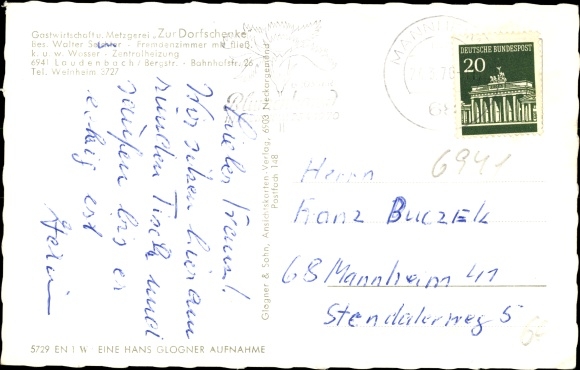 Gastwirtschaft u. Metzgerei „Zur Dorfschenke"
bes. Walter - Fremdenzimmer mit fließ.
k. u. w. Wasser - Zentralheizung
6941 Laudenbach/Bergstr. - Bahnhofstr. 26
Tel. Weinheim 3727
Lieber Franz!
Wir sitzen hier am
runden Tisch und
saufen bis er
eckig ist
Glogner & Sohn, Ansichtskarten-Verlag, 6903 Neckargemünd
Postfach 148
MANNHEIM
DEUTSCHE BUNDESPOST
20
6941
Herrn
Franz Buczek
68 Mannheim 41
Stendalerweg 5
5729 EN 1 W EINE HANS GLOGNER AUFNAHME